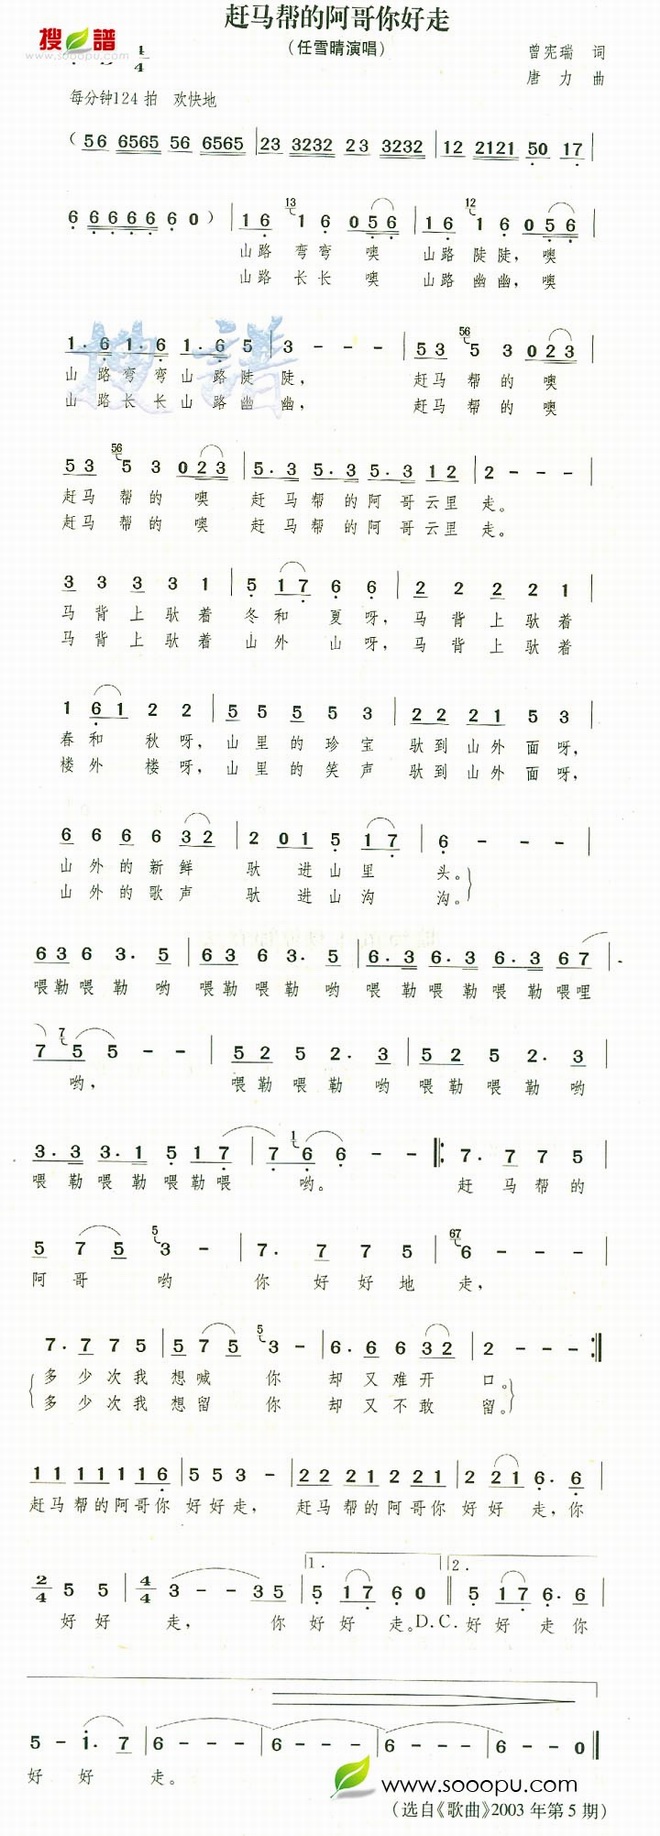 赶马帮的阿哥你好走
搜谱
www.sooopu.com
(任雪晴演唱)
曾宪瑞 词
4/4
唐 力 曲
每分钟124拍 欢快地
( 56 6565 56 6565 | 23 3232 23 3232 | 12 2121 50 17 |
6 66666 60 ) | 16 13 1 6 056 | 16 12 1 6 056 |
山路 弯弯 噢 山路 陡陡, 噢
山路 长长 噢 山路 幽幽, 噢
1·61·6 1·65 | 3 - - - | 53 56 5 3 023 |
山路弯弯山路陡陡, 赶马帮的噢
山路长长山路幽幽, 赶马帮的噢
53 56 5 3 023 | 5·3 5·3 5·3 12 | 2 - - - |
赶马帮的噢 赶马帮的阿哥云里走。
赶马帮的噢 赶马帮的阿哥云里走。
3 3 3 3 1 | 5 17 6 6 | 2 2 2 2 1 |
马背上驮着 冬和夏呀, 马背上驮着
马背上驮着 山外山呀, 马背上驮着
1 61 2 2 | 5 5 5 5 3 | 22 21 5 3 |
春和秋呀, 山里的珍宝 驮到山外面呀,
楼外楼呀, 山里的笑声 驮到山外面呀,
6 6 6 6 32 | 2 01 5 17 | 6 - - - |
山外的新鲜 驮进山里头。
山外的歌声 驮进山沟沟。
63 6 3· 5 | 63 6 3· 5 | 6·3 6·3 6·3 67 |
喂勒喂勒哟 喂勒喂勒哟 喂勒喂勒喂勒喂哩
7 7 5 5 - - | 52 5 2· 3 | 52 5 2· 3 |
哟, 喂勒喂勒哟 喂勒喂勒哟
3·3 3·1 5 17 | 7 1 6 6 - - ‖: 7· 7 7 5 |
喂勒喂勒喂勒喂 哟。 赶马帮的
5 7 5 5 3 - | 7· 7 7 5 | 67 6 - - - |
阿哥哟 你好好地走,
7· 7 7 5 | 5 7 5 5 3 - | 6· 6 6 32 | 2 - - - :‖
多少次我想喊你 却又难开口。
多少次我想留你 却又不敢留。
11 11 11 16 | 5 5 3 - | 22 21 22 21 | 2 221 6· 6 |
赶马帮的阿哥你好好走, 赶马帮的阿哥你好好走,你
1. 2.
2/4 5 5 | 4/4 3 - - 35 | 5 17 6 0 ‖ 5 17 6· 6 |
好好 走, 你好好走。D.C.好好走你
5 - 1· 7 | 6 - - - | 6 - - - | 6 - - - | 6 - - 0 ‖
好好走。
www.sooopu.com
(选自《歌曲》2003年第5期)